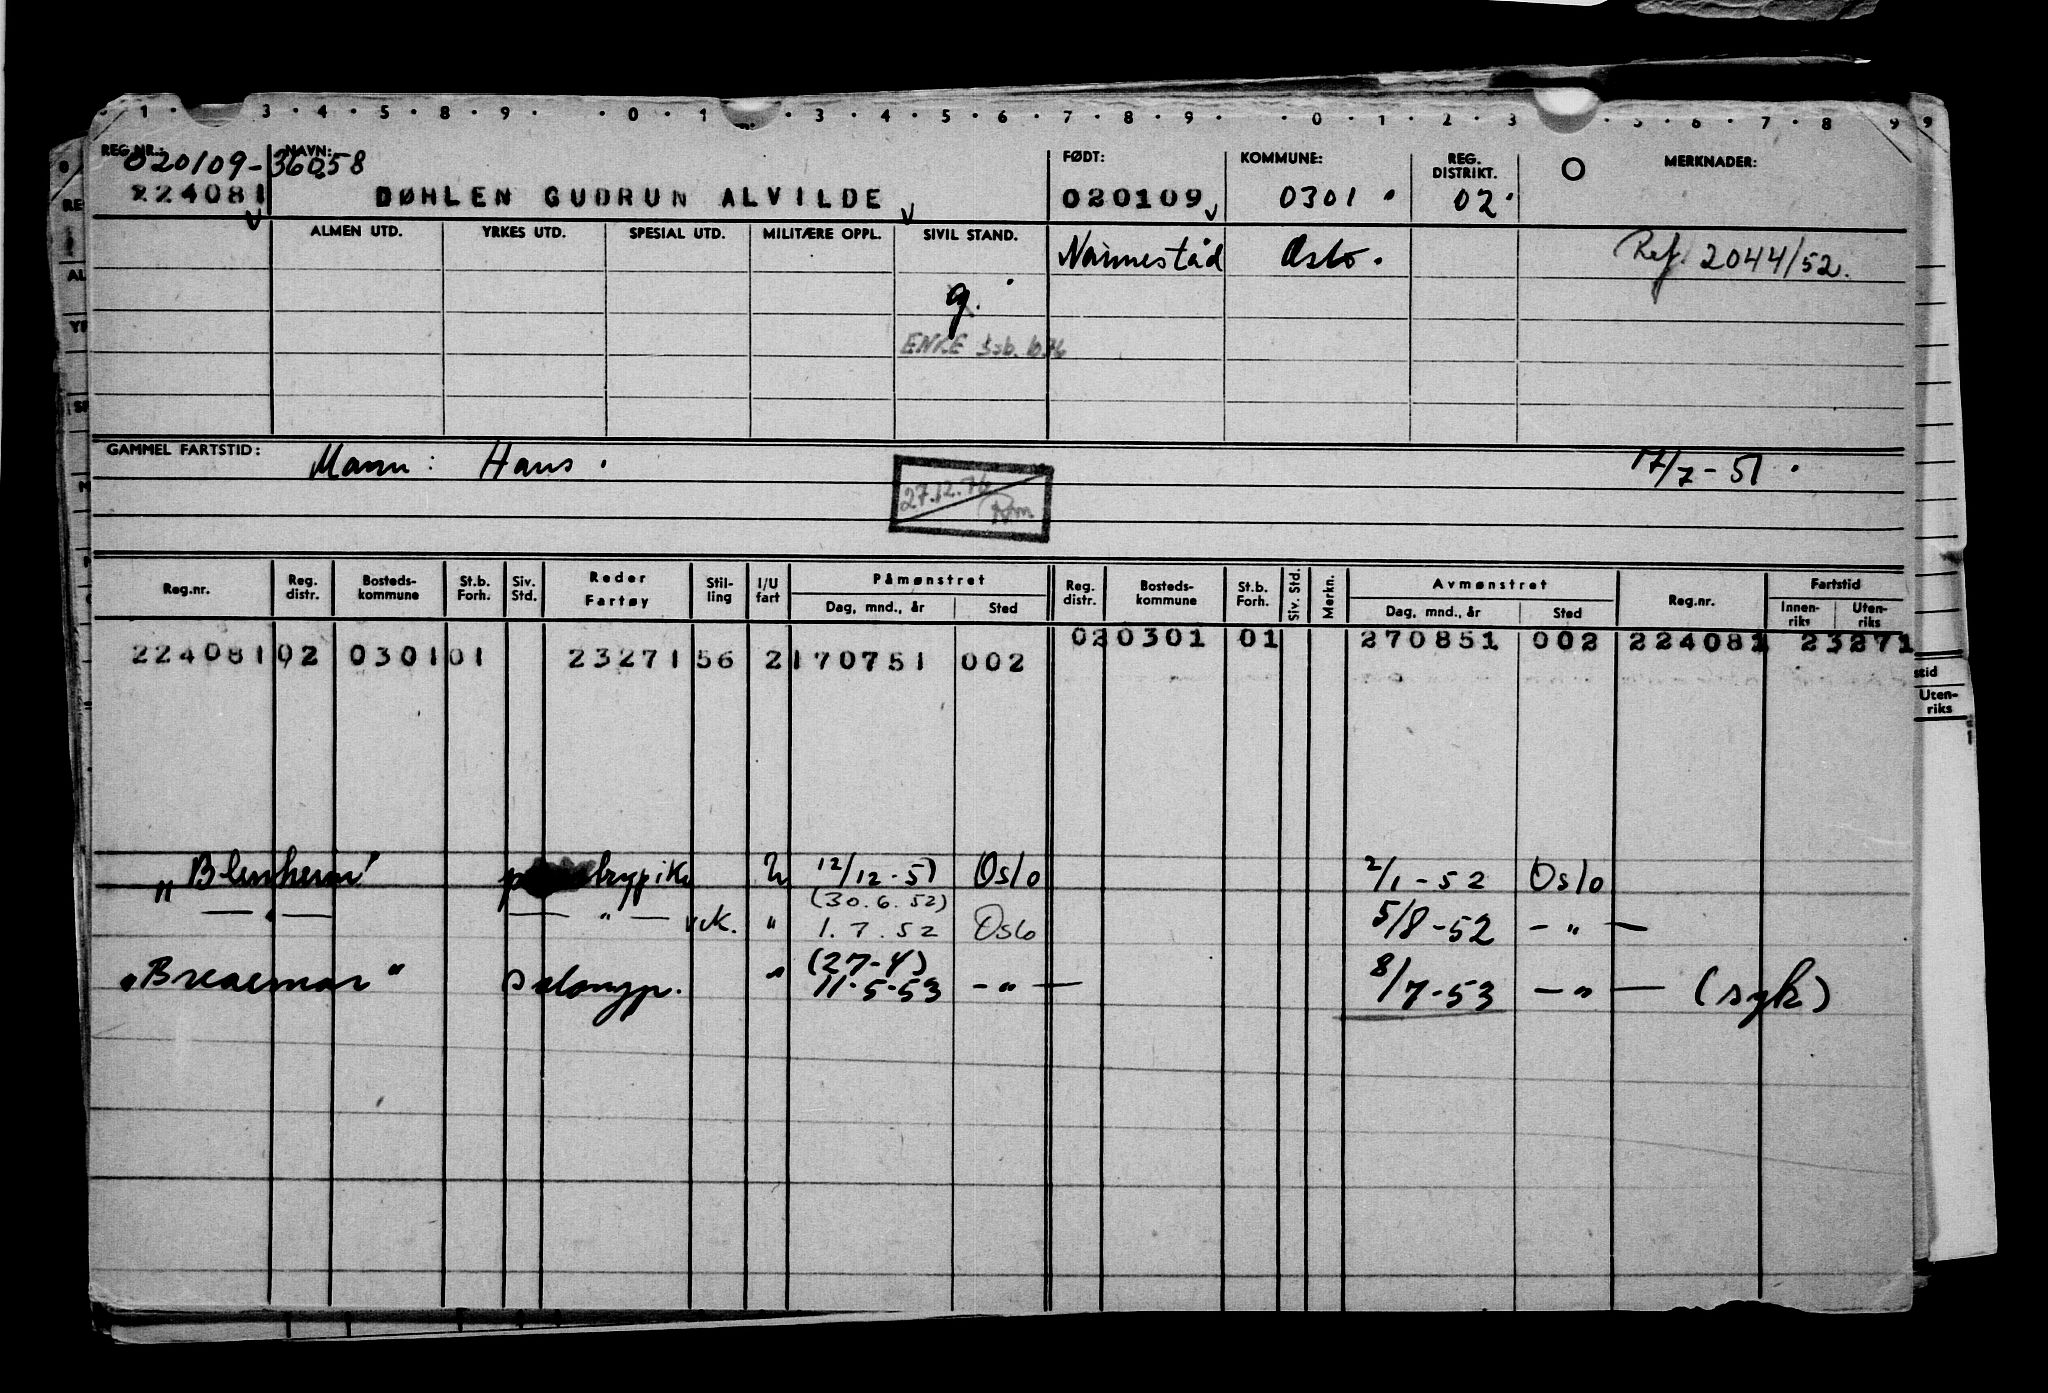 1 · 3 · 4 · 5 · 8 · 9 · 0 · 1 · 3 · 4 · 5 · 6 · 7 · 8 · 9 · 0 · 1 · 2 · 3 · 5 · 6 · 7 · 8 9
REG.NR.: NAVN: FØDT: KOMMUNE: REG. DISTRIKT. O MERKNADER:
020109-36058
224081 DØHLEN GUDRUN ALVILDE 020109 0301 · 02 ·
ALMEN UTD. YRKES UTD. SPESIAL UTD. MILITÆRE OPPL. SIVIL STAND.
Nannestad Oslo. Ref. 2044/52.
g.
ENKE
GAMMEL FARTSTID: Mann: Hans. 17/7-51.
27.12.76
Reg.nr. Reg. distr. Bosteds-kommune St.b. Forh. Siv. Std. Reder Fartøy Stil-ling I/U fart Påmønstret Reg. distr. Bosteds-kommune St.b. Forh. Siv. Std. Merkn. Avmønstret Reg.nr. Fartstid
Dag, mnd., år Sted Dag, mnd., år Sted Innen-riks Uten-riks
020301 01 270851 002 224081 23271
224081 02 0301 01 23271 56 2 170751 002
"Blenheim" U 12/12-51 Oslo 2/1-52 Oslo
(30.6.52)
— " — — " — vik. " 1.7.52 Oslo 5/8-52 — " —
(27-4)
"Breaemar" Salongp. " 11-5-53 — " — 8/7-53 — " — (syk)
stid
Uten-
riks